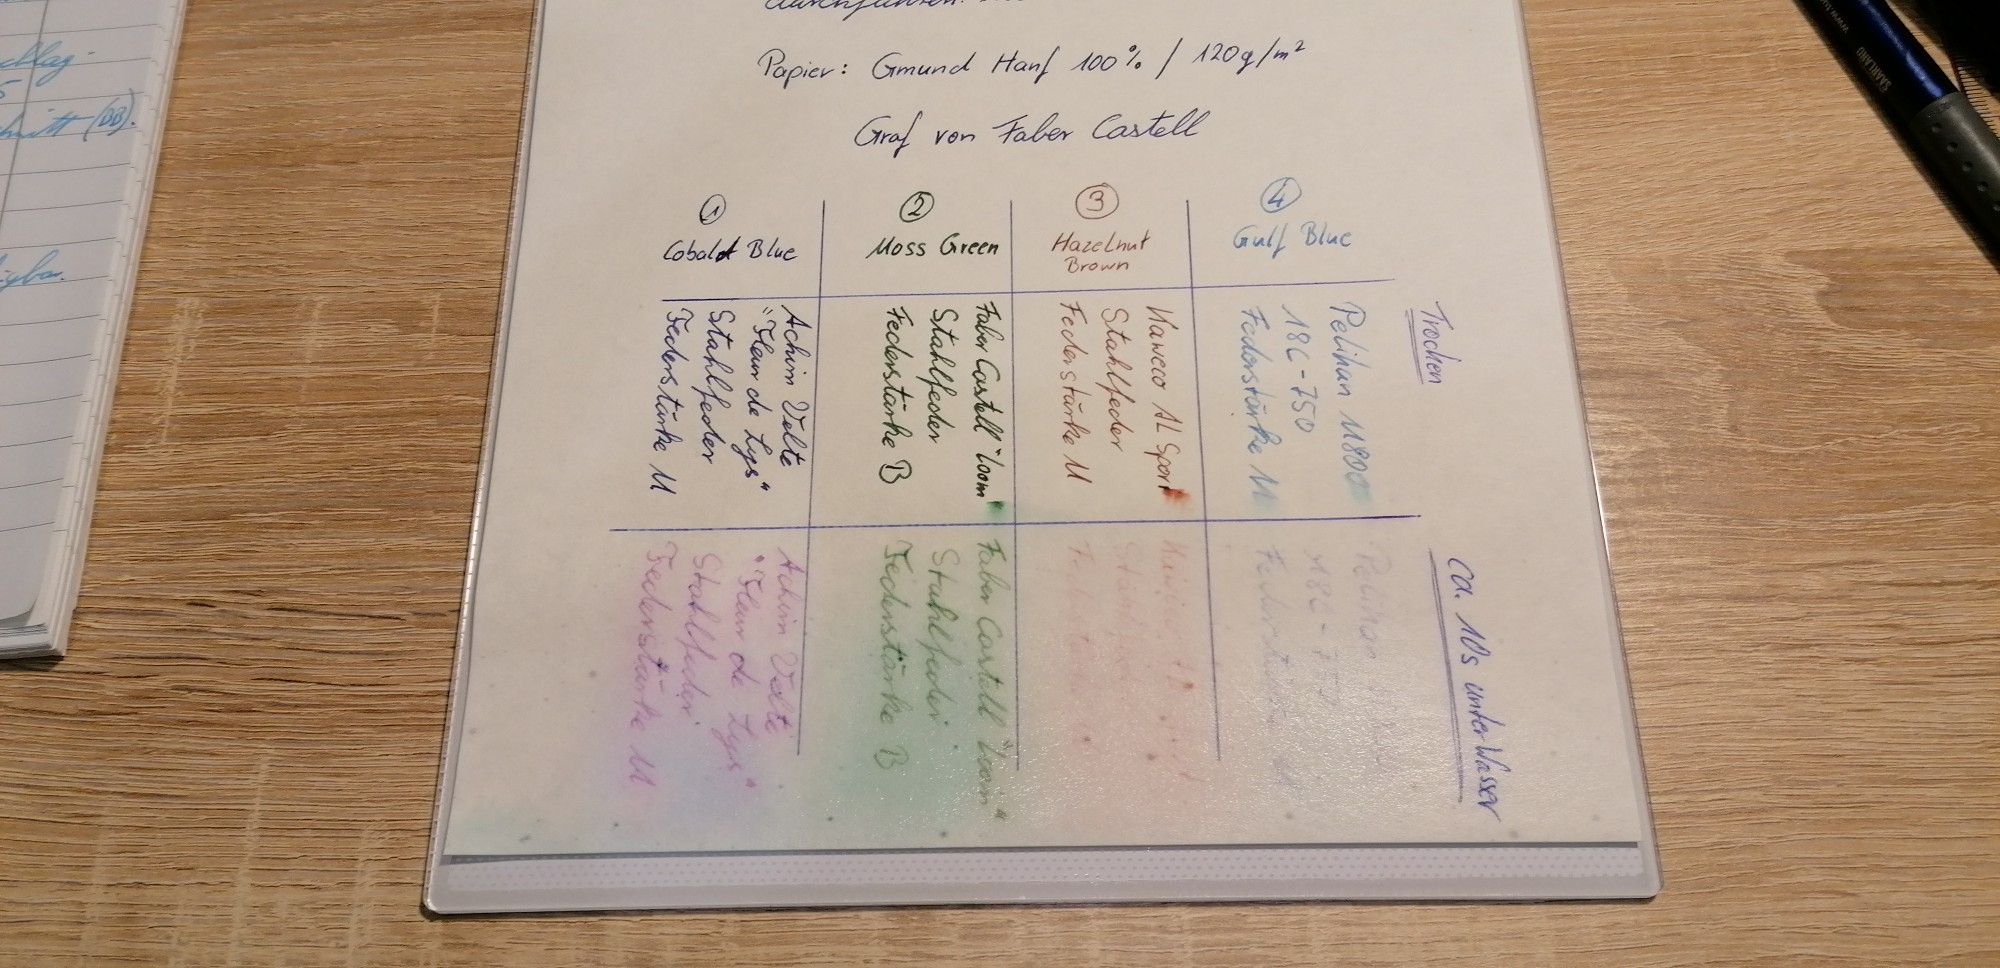 durchführen.
Papier: Gmund Hanf 100% / 120g/m²
Graf von Faber Castell
1
Cobald Blue
2
Moss Green
3
Hazelnut
Brown
4
Gulf Blue
Achim Velte
"Fleur de Lys"
Stahlfeder
Federstärke M
Faber Castell "Loom"
Stahlfeder
Federstärke B
Kaweco AL Sport
Stahlfeder
Federstärke M
Pelikan M800
18C-750
Federstärke M
Trocken
Achim Velte
"Fleur de Lys"
Stahlfeder
Federstärke M
Faber Castell "Loom"
Stahlfeder
Federstärke B
Pelikan
18C-750
Federstärke M
ca. 10s unter Wasser
chlag-
(BB).
SAARLAND